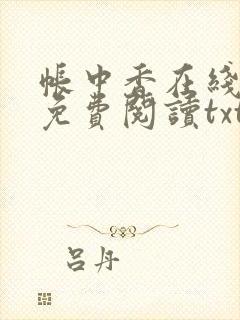 帳中香在綫
免費閱讀txt
呂丹